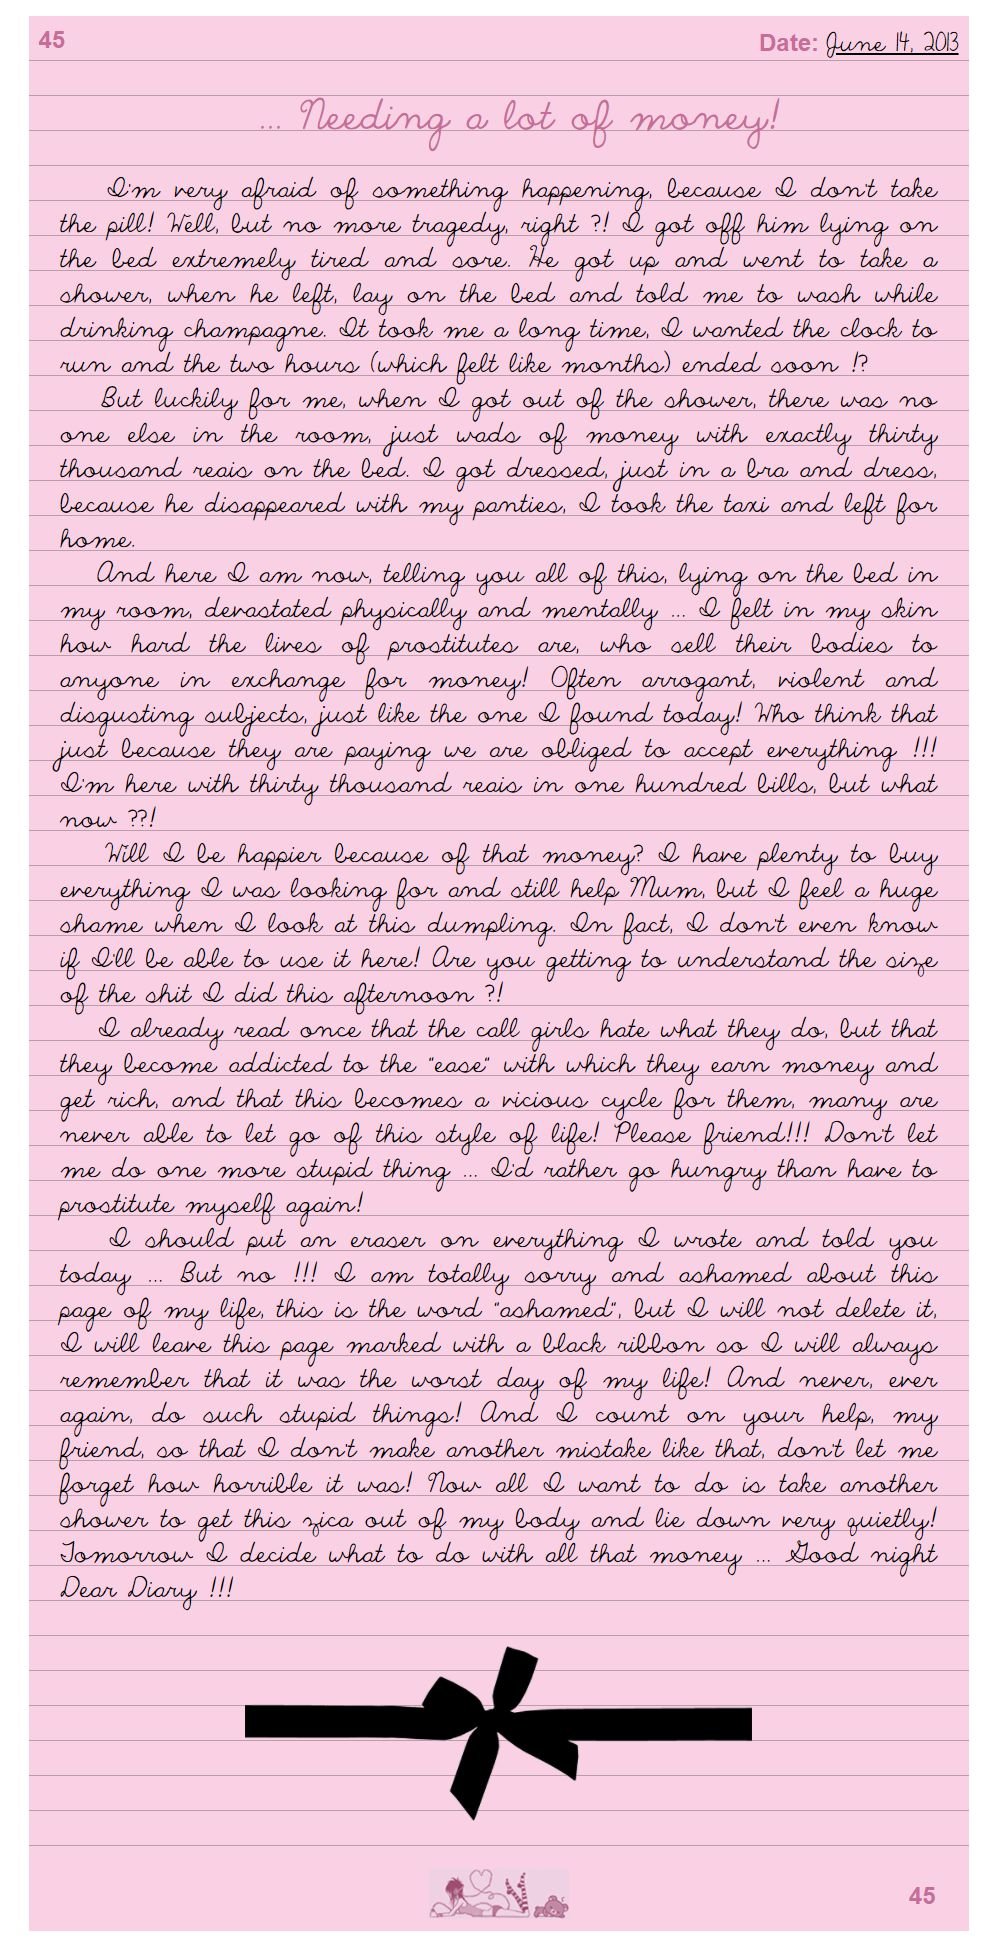 45
Date: June 14, 2013
... Needing a lot of money!
I'm very afraid of something happening, because I don't take
the pill! Well, but no more tragedy, right ?! I got off him lying on
the bed extremely tired and sore. He got up and went to take a
shower, when he left, lay on the bed and told me to wash while
drinking champagne. It took me a long time, I wanted the clock to
run and the two hours (which felt like months) ended soon !?
But luckily for me, when I got out of the shower, there was no
one else in the room, just wads of money with exactly thirty
thousand reais on the bed. I got dressed, just in a bra and dress,
because he disappeared with my panties, I took the taxi and left for
home.
And here I am now, telling you all of this, lying on the bed in
my room, devastated physically and mentally ... I felt in my skin
how hard the lives of prostitutes are, who sell their bodies to
anyone in exchange for money! Often arrogant, violent and
disgusting subjects, just like the one I found today! Who think that
just because they are paying we are obliged to accept everything !!!
I'm here with thirty thousand reais in one hundred bills, but what
now ??!
Will I be happier because of that money? I have plenty to buy
everything I was looking for and still help Mum, but I feel a huge
shame when I look at this dumpling. In fact, I don't even know
if I'll be able to use it here! Are you getting to understand the size
of the shit I did this afternoon ?!
I already read once that the call girls hate what they do, but that
they become addicted to the "ease" with which they earn money and
get rich, and that this becomes a vicious cycle for them, many are
never able to let go of this style of life! Please friend!!! Don't let
me do one more stupid thing ... I'd rather go hungry than have to
prostitute myself again!
I should put an eraser on everything I wrote and told you
today ... But no !!! I am totally sorry and ashamed about this
page of my life, this is the word "ashamed", but I will not delete it,
I will leave this page marked with a black ribbon so I will always
remember that it was the worst day of my life! And never, ever
again, do such stupid things! And I count on your help, my
friend, so that I don't make another mistake like that, don't let me
forget how horrible it was! Now all I want to do is take another
shower to get this zica out of my body and lie down very quietly!
Tomorrow I decide what to do with all that money ... Good night
Dear Diary !!!
45